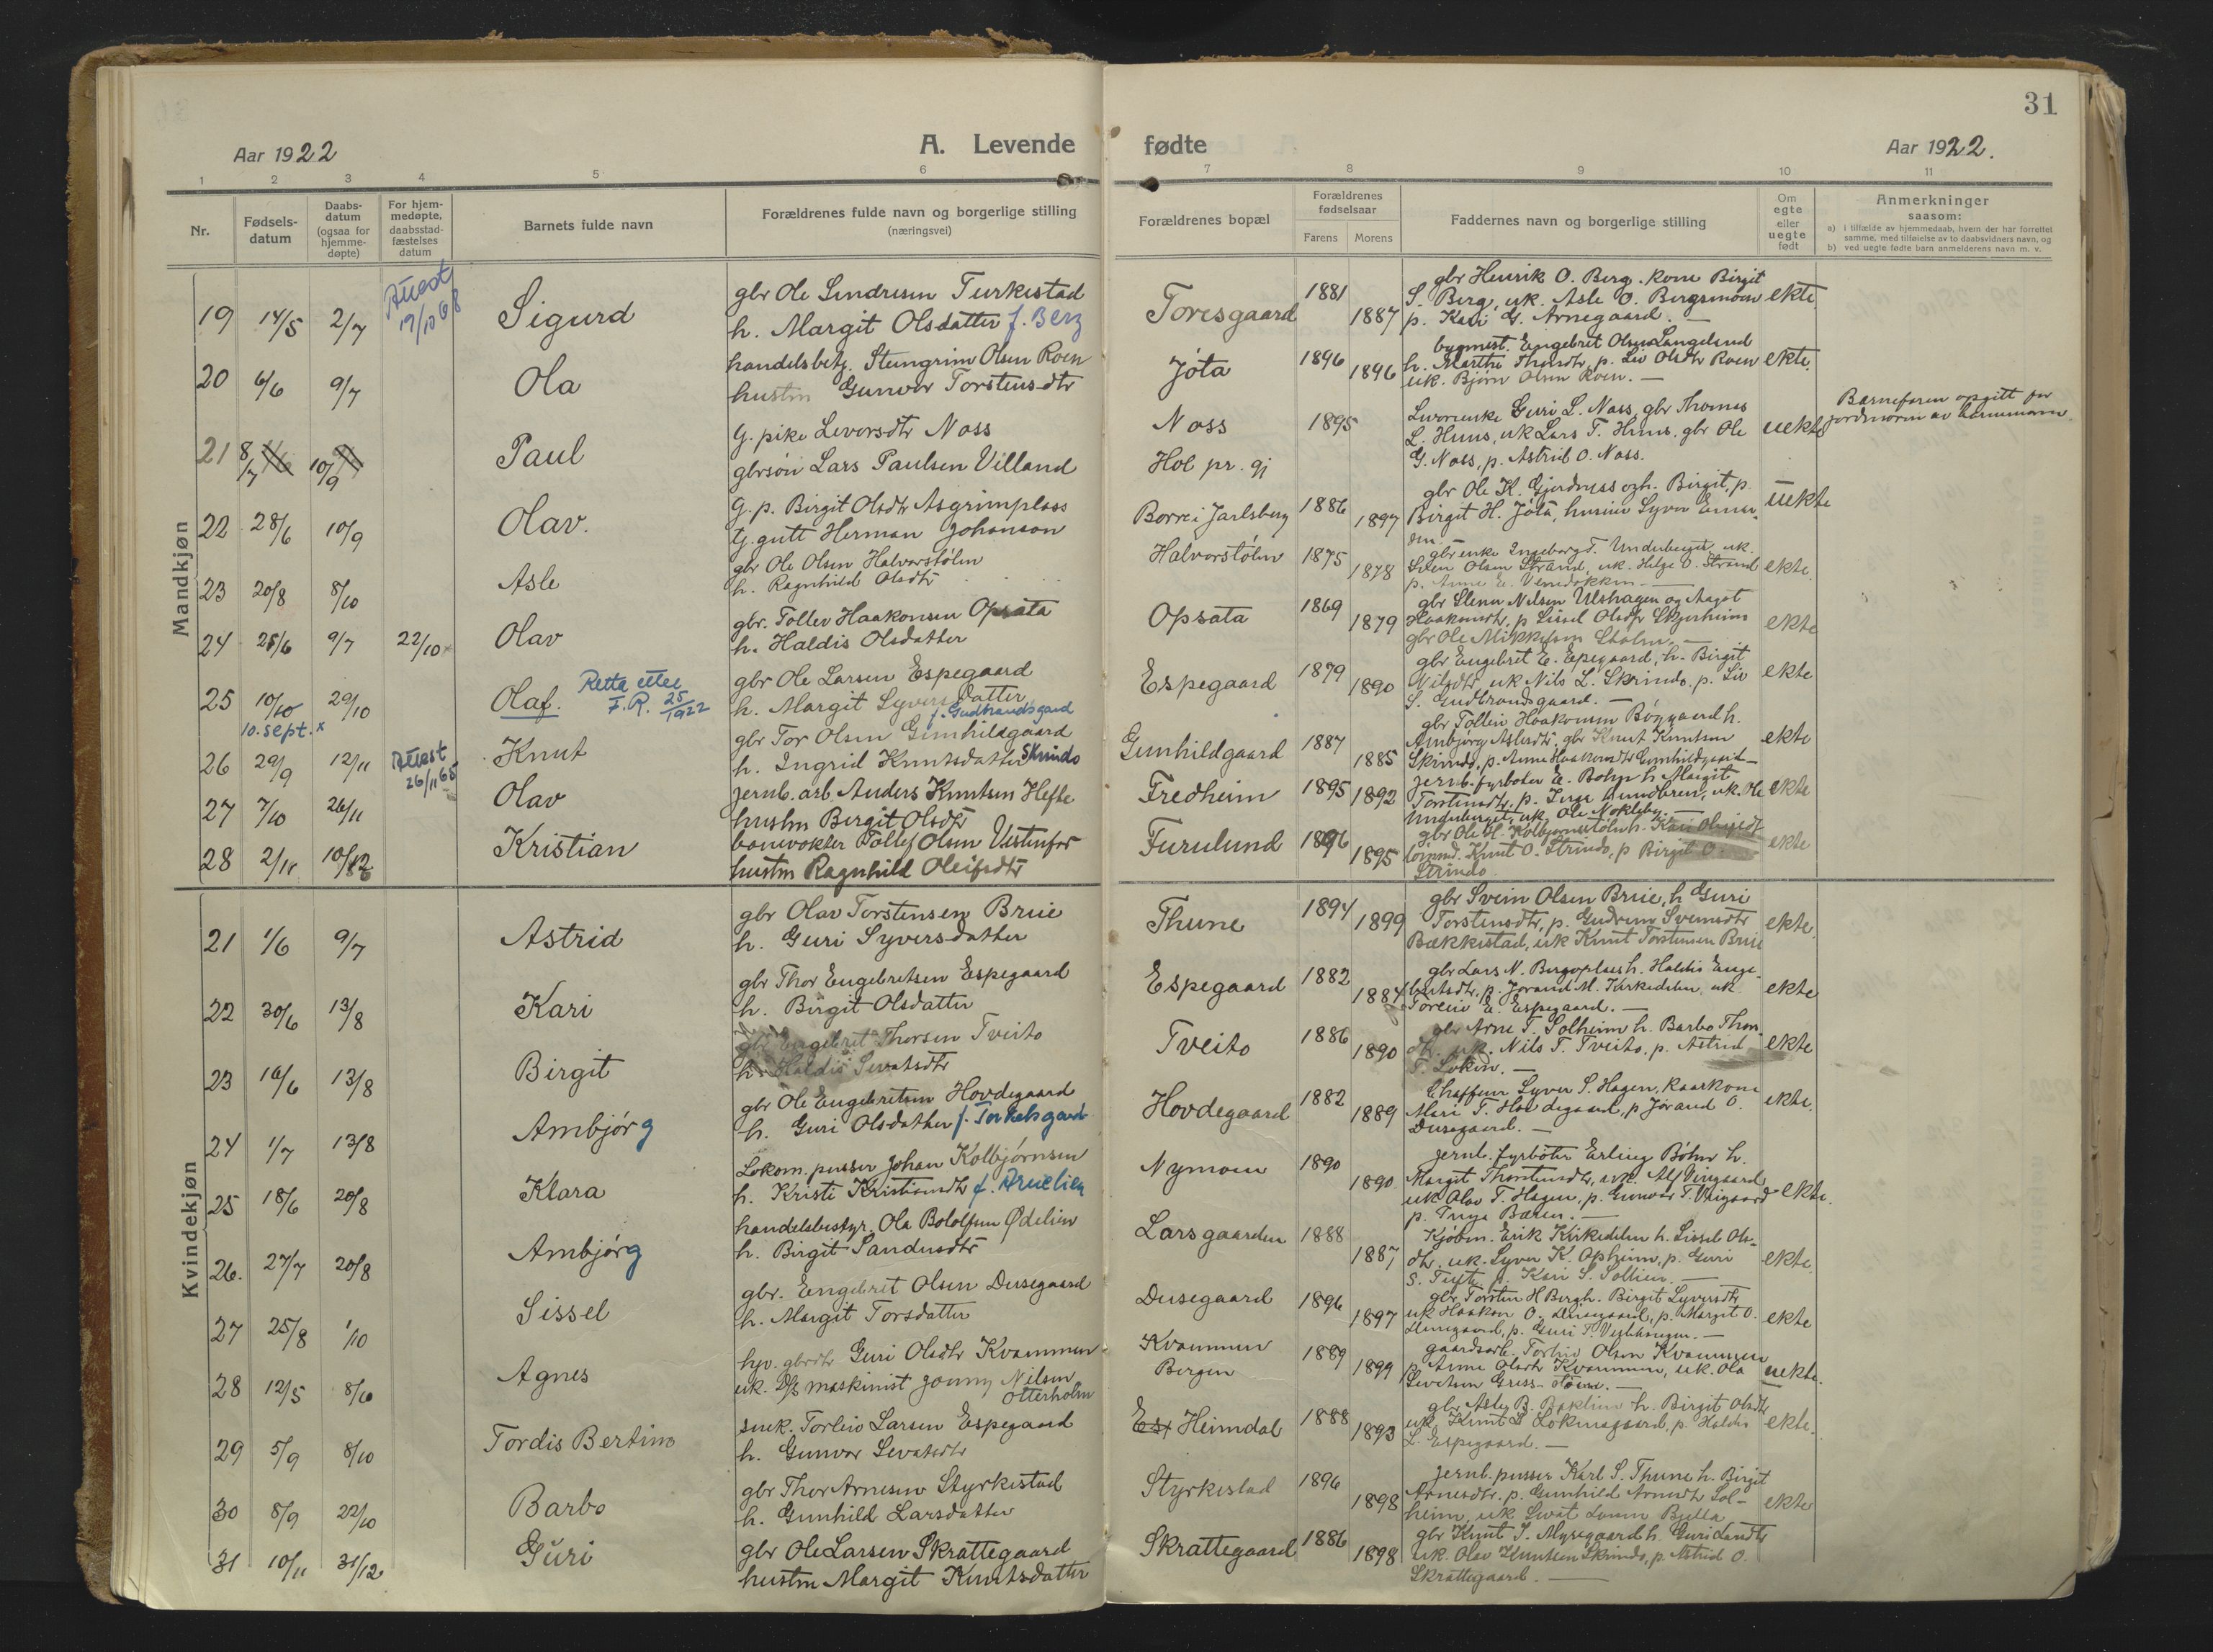 31
Aar 1922
A. Levende
fødte
Aar 1922.
1 2 3 4 5 6 7 8 9 10 11
Nr.
Fødsels-
datum
Daabs-
datum
(ogsaa for
hjemme-
døpte)
For hjem-
medøpte,
daabsstad-
fæstelses
datum
Barnets fulde navn
Forældrenes fulde navn og borgerlige stilling
(næringsvei)
Forældrenes bopæl
Forældrenes
fødselsaar
Farens Morens
Faddernes navn og borgerlige stilling
Om
egte
eller
uegte
født
Anmerkninger
saasom:
a) i tilfælde av hjemmedaab, hvem der har forrettet
samme, med tilføielse av to daabsvidners navn, og
b) ved uegte fødte barn anmelderens navn m. v.
Mandkjøn
19 14/5 2/7 Attest 19/10 68 Sigurd
gbr Ole Sindresen Turkestad
h. Margit Olsdatter f. Berg
Toresgaard 1881 1887
gbr Henrik O. Berg. kone Birgit
S. Berg, uk. Asle O. Bergsmoen
p. Kari G. Arnegaard. —
ekte
20 6/6 9/7 Ola
handelsbetj. Steingrim Olsen Roen
hustru Gunvor Torstens-dtr
Jóta 1896 1896
bygmest. Engebret Olsen Langelund
h. Marthe Thorsdtr, p. Liv Olsdtr Roen
uk. Bjørn Olsen Roen. —
ekte.
21 8/7 10/9 Paul
G. pike Levorsdtr Noss
gbrsøn Lars Paulsen Villand
Noss
Hol pr. gj
1895
Guri L. Noss, gbr Thomas
L. Huus, uk Lars T. Huus, gbr Ole
G. Noss, p. Astrid O. Noss.
uekte
Barnefaren opgitt for
jordmoren av barnemoren
22 28/6 10/9 Olav.
G. p. Birgit Olsdtr Asgrimplass
G. gutt Herman Johanson
Borre i Jarlsberg 1886 1897
gbr Ole K. Gjerdnyss og h. Birgit, p.
Birgit H. Jóta, Syver
uekte
23 20/8 8/10 Asle
gbr Ole Olsen Halvorstølen
h. Ragnhild Olsdtr
Halvorstølen 1875 1878
gbr enke Ingeborg T. Underberget, uk.
Sven Olsen Strand, uk. Helge O. Strand
p. Anne E. —
ekte.
24 25/6 9/7 22/10 Olav
gbr. Tollev Haakonsen Opsata
h. Haldis Olsdatter
Opsata 1869 1879
gbr Steinar Nilsen Ulshagen og Aagot
Haakonsdtr, p Sissel Olsdtr Skjerheim
gbr Ole Mikkelsen Stølen. —
ekte
25 10/10 29/10 Olaf. Retta etter F. R. 25/1922
10. sept. x
gbr Ole Larsen Espegaard
h. Margit Syversdatter
f. Gudbrandsgaard
Espegaard 1879 1890
gbr Engebret E. Espegaard, h. Birgit
Nilsdtr uk Nils L. Skrindo. p. Liv
S. Gudbrandsgaard. —
ekte
26 29/9 12/11 Attest 26/11 65 Knut
gbr Tor Olsen Gunhildgaard
h. Ingrid Knutsdatter Skrindo
Gunhildgaard 1887 1885
gbr Tollev Haakonsen Bøygaard h.
Ambjørg Aslesdtr, gbr Knut Knutsen
Skrindo, p. Anne Haakonsdtr Gunhildgaard —
ekte
27 7/10 26/11 Olav
jernb. arb. Anders Knutsen Hefte
hustru Birgit Olsdtr
Fredheim 1895 1892
jernb. fyrbøter E. Bøhn h. Margit
Torstensdtr, p. Inga uk. Ole
Underberget, uk. Ole Nokleby
ekte
28 2/11 10/12 Kristian
banevokter Tollef Olsen Vestenfor
hustru Ragnhild Oleifsdtr
Furulund 1896 1895
gbr Ole H. Kolbjørnstølen h. Kari
Knut O. Strindo, p Birgit O.
Strindo
ekte
Kvindekjøn
21 1/6 9/7 Astrid
gbr Olav Torstensen Brue
h. Guri Syversdatter
Thune 1894 1899
gbr Svein Olsen Brue, h Guri
Torstensdtr, p. Gudrun Sveinsdtr
Bækkestad, uk Knut Torstensen Brue
ekte.
22 30/6 13/8 Kari
gbr Thor Engebretsen Espegaard
h. Birgit Olsdatter
Espegaard 1882 1884
gbr Lars N. Bergoplass h. Haldis Enge-
bretsdtr, p. Jorand M. Kirkedelen, uk
Torleiv E. Espegaard. —
ekte
23 16/6 13/8 Birgit
gbr Engebret Thorsen Tveito
h. Haldis Sevatsdtr
Tveito 1886 1890
gbr Arne T. Solheim h. Barbo Thor-
dtr. uk. Nils T. Tveito, p. Astrid
T. Løken. —
ekte
24 1/7 13/8 Ambjórg
gbr Ole Engebretsen Hovdegaard
h. Guri Olsdatter f. Torkelsgaard
Hovdegaard 1882 1889
Chaffeur Syver S. Hagen, kaarkone
Mari T. Hovdegaard, p Jørand O.
Dusegaard. —
ekte.
25 18/6 20/8 Klara
Lokom. pusser Johan Kolbjørnsen
h. Kristi Kristiansdtr f. Aruelien
Nymoen 1890 1890
jernb. fyrbøter Erling Bøhn h.
Margit Thorstensdtr, uk. Alf Vingaard
uk Olav T. Hagen, p. Gunvor T. Vingaard
p. Inga Bæren. —
ekte.
26. 27/7 20/8 Ambjórg
handelsbestyr. Ola Bololfsen Ødelien
h. Birgit Sandersdtr
Larsgaarden 1888 1887
Kjøbm. Erik Kirkedelen h. Sissel Ols-
dtr. uk. Syver K. Opheim, p. Guri
S. Tufte, p. Kari S. Sollien. —
ekte.
27 25/8 1/10 Sissel
gbr. Engebret Olsen Dusegaard
h. Margit Torsdatter
Dusegaard 1896 1897
gbr. Torsten H Bergh. Birgit Syversdtr
uk Haakon O. p. Margit O.
p. Guri T. —
ekte
28 12/5 8/10 Agnes
hp. gbrdtr Guri Olsdtr Kvammen
uk. D/S maskinist Jonny Nilsen
Otterholm
Kvammen
Bergen
1889 1899
gaardsarb. Torleiv Olsen Kvammen
p. Anne Olsdtr Kvammen, uk. Ola
uekte.
29 5/9 8/10 Tordis Bertine
snek. Torleiv Larsen Espegaard
h. Gunvor Sevatsdtr
Est Heimdal 1888 1893
gbr Asle B. h. Birgit Olsdtr
uk Knut L Lokensgaard, p. Haldis
L. Espegaard. —
ekte.
30 8/9 22/10 Barbo
gbr Thor Arnesen Styrkestad
h. Gunhild Larsdatter
Styrkestad 1896 1898
jernb. pusser Karl S. Thune h. Birgit
Arnesdtr. p. Gunhild Arnesdtr Sol-
heim, uk Sevat Larsen Bjella
ekte
31 10/11 31/12 Guri
gbr Ole Larsen Skrattegaard
hustru Margit Knutsdatter
Skrattegaard 1886 1898
gbr Knut S. Myregaard h. Guri Larsdtr
uk. Olav Knutsen Skrindo, p. Astrid O.
Skrattegaard. —